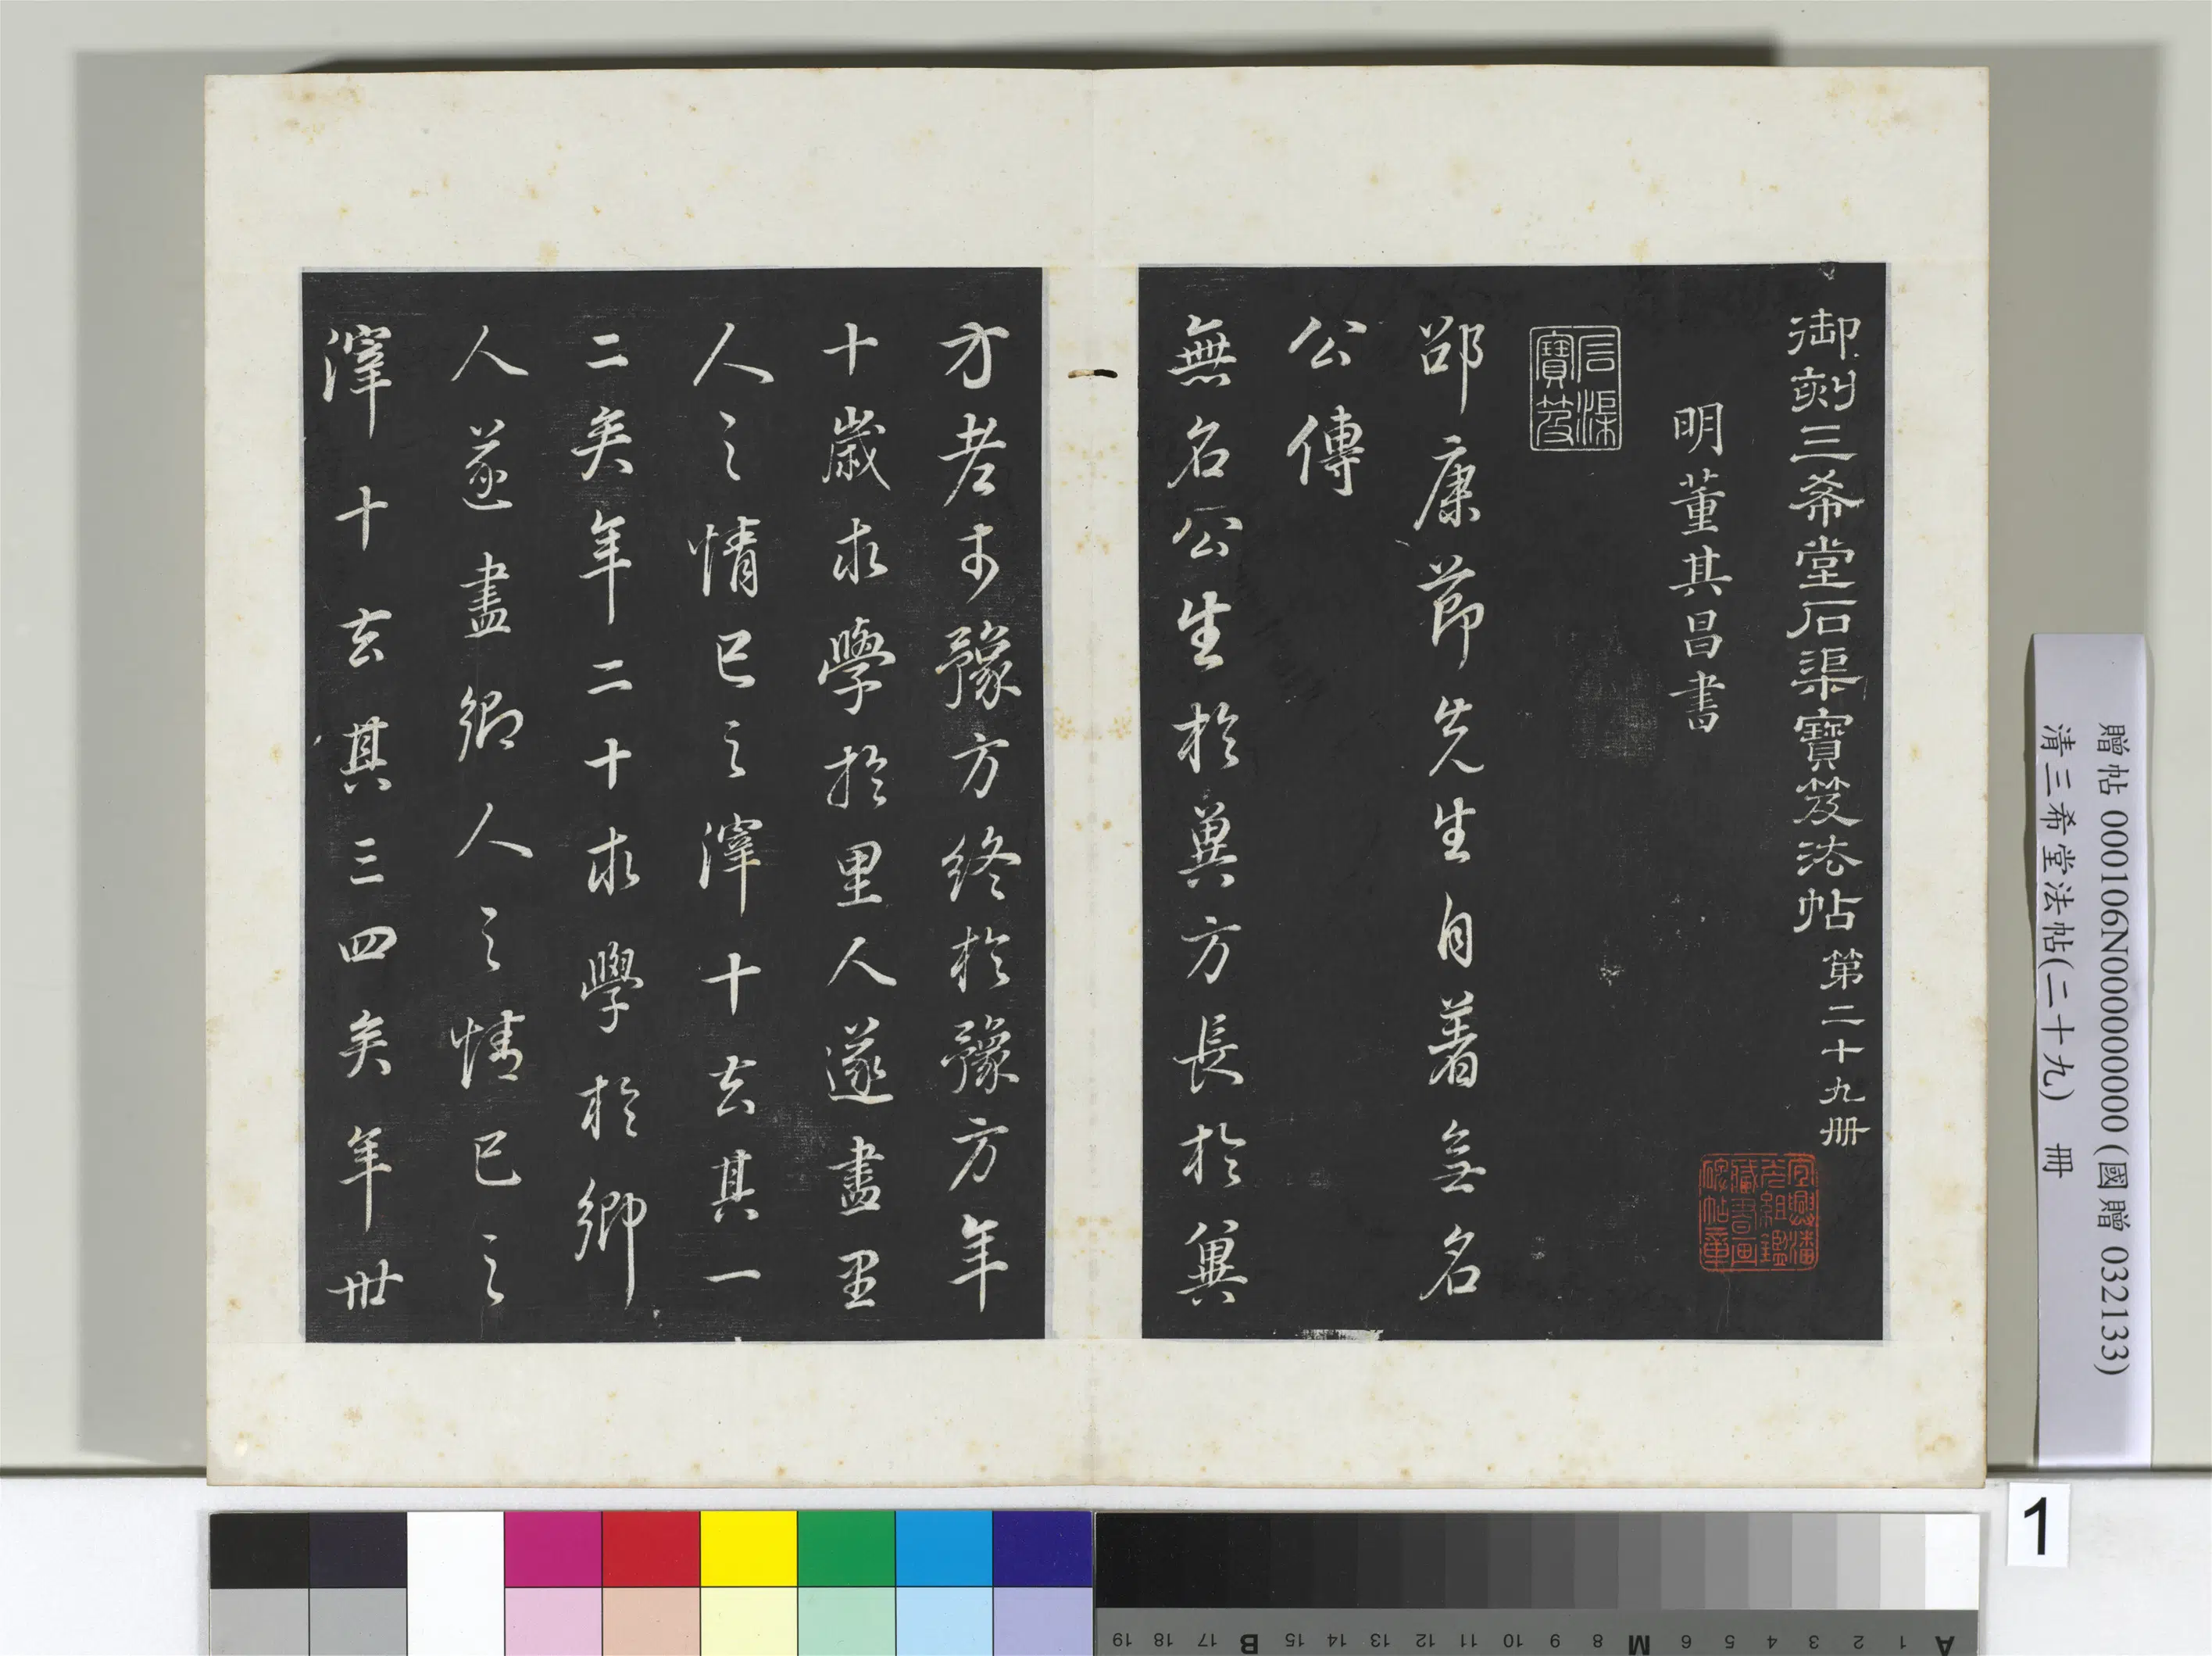 御刻三希堂石渠寶笈法帖 第二十九冊
宜興潘元組鑑藏書画碑帖章
明董其昌書
石渠寶笈
邵康節先生自著無名
公傳
無名公生於兾方長於兾
方老於豫方終於豫方年
十歲求學於里人遂盡里
人之情已之滓十去其一
二矣年二十求學於鄉
人遂盡鄉人之情已之
滓十去其三四矣年卅
贈帖 000106N000000000 (國贈 032133)
清三希堂法帖(二十九) 冊
1
A 1 2 3 4 5 6 M 8 9 10 11 12 13 14 15 B 17 18 19